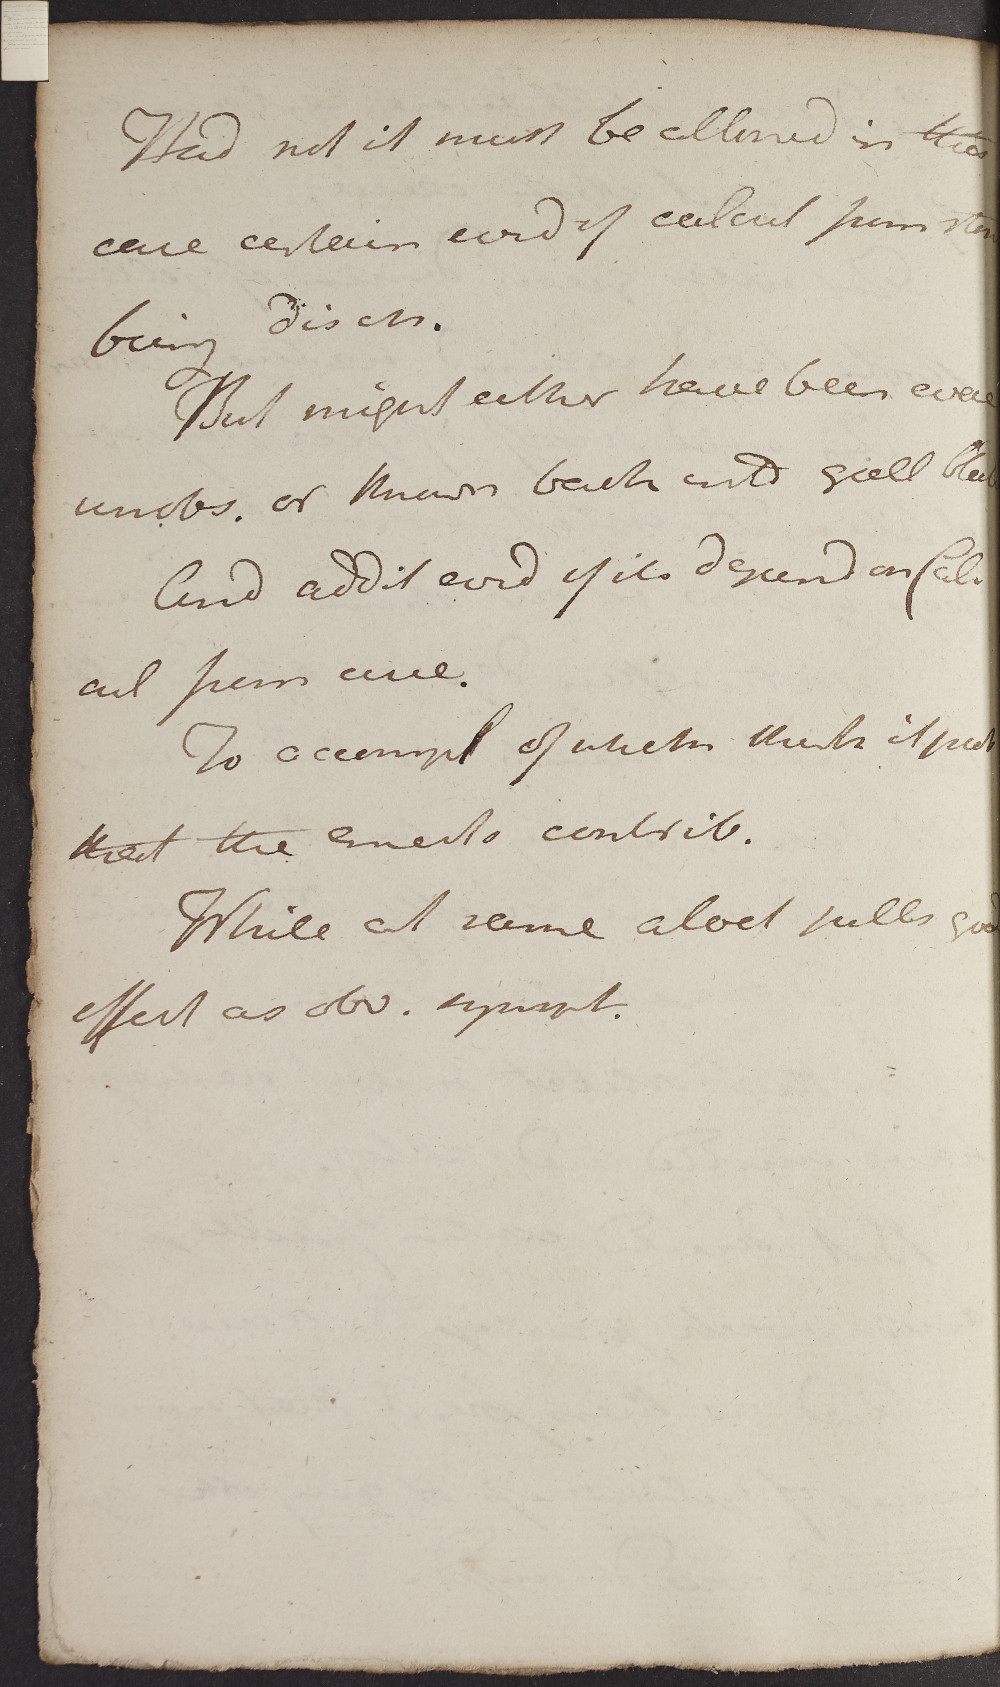 Had not it must be allowed in this
case certain evid of calcul from ston
being disch.
But might either have been evac
unobs. or thrown back into gall blad
And addit evid of its depend on Cal.
cul from cure.
To accompl of which think it prob
that the emets contrib.
While at same aloet pills good
effect as obv. sympt.